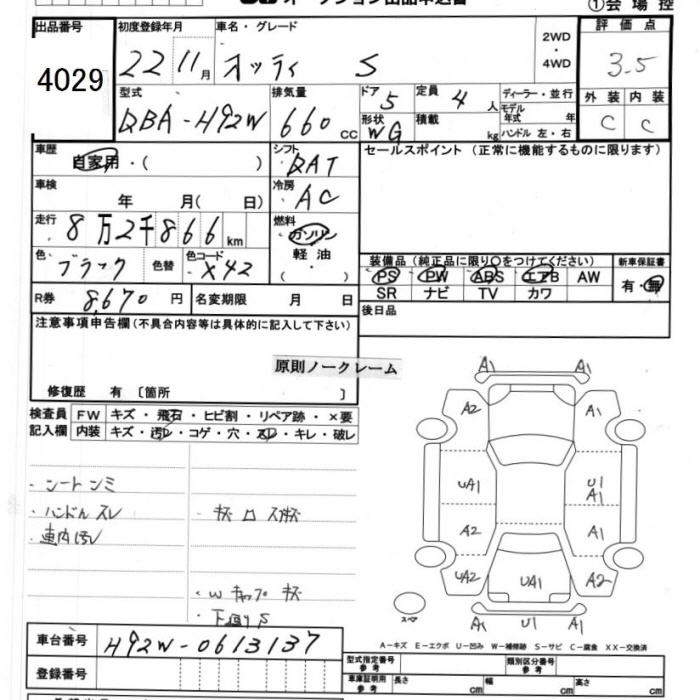 オークション出品申込書
①会場控
出品番号 初度登録年月 車名・グレード 2WD ・ 4WD 評価点
4029 22 11月 オッティ S 3.5
型式 排気量 ドア 5 定員 4人 ディーラー・並行 外装 内装
モデル年式 年式
DBA-H92W 660cc 形状 WG 積載 kg ハンドル 左・右 C C
車歴 自家用・( ) シフト DAT セールスポイント(正常に機能するものに限ります)
車検 年 月( 日) 冷房 AC
走行 8万2千866km 燃料 ガソリン
軽油
・
( )
色 ブラック 色替 色コード X42 装備品(純正品に限り○をつけてください) 新車保証書
PS PW ABS エアB AW 有・無
SR ナビ TV カワ
R券 8,670円 名変期限 月 日 後日品
注意事項申告欄(不具合内容等は具体的に記入して下さい)
原則ノークレーム
修復歴 有 〔箇所 〕
検査員 FW キズ・飛石・ヒビ割・リペア跡・×要
記入欄 内装 キズ・汚レ・コゲ・穴・スレ・キレ・破レ
・シートシミ
・ハンドルスレ ・キズ
・車内汚レ
・Wキャップ キズ
・下廻りS
A1 A1
A2 A1
UA1 U1 A1
A2 A1
UA2 UA1 A2
スペア A1 U1 A1
A-キズ E-エクボ U-凹み W-補修跡 S-サビ C-腐食 XX-交換済
車台番号 H92W-0613137
型式指定番号 参考 類別区分番号 参考
登録番号 車庫証明用 参考 長さ cm 幅 cm 高さ cm